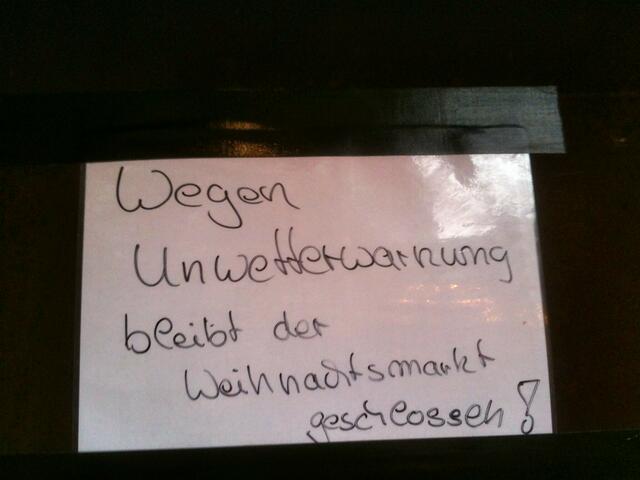 Wegen
Unwetterwarnung
bleibt der
Weihnachtsmarkt
geschlossen!